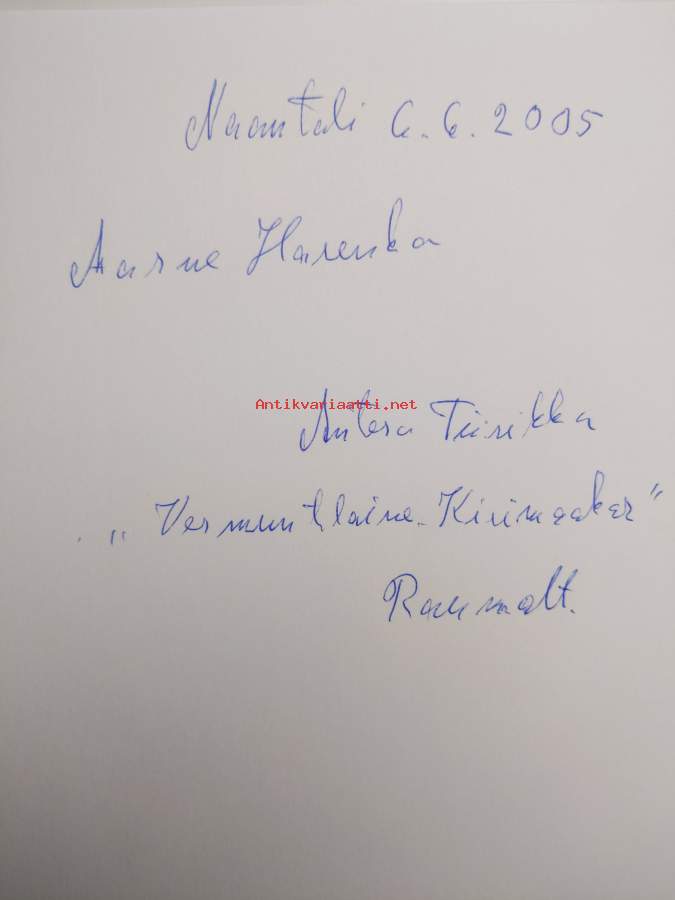 Naantali 6.6.2005
Aarne Harenka
Antikvariaatti.net
Antero Tiirikka
„Vermuntlaine-Kiirmaakar”
Raumalt.